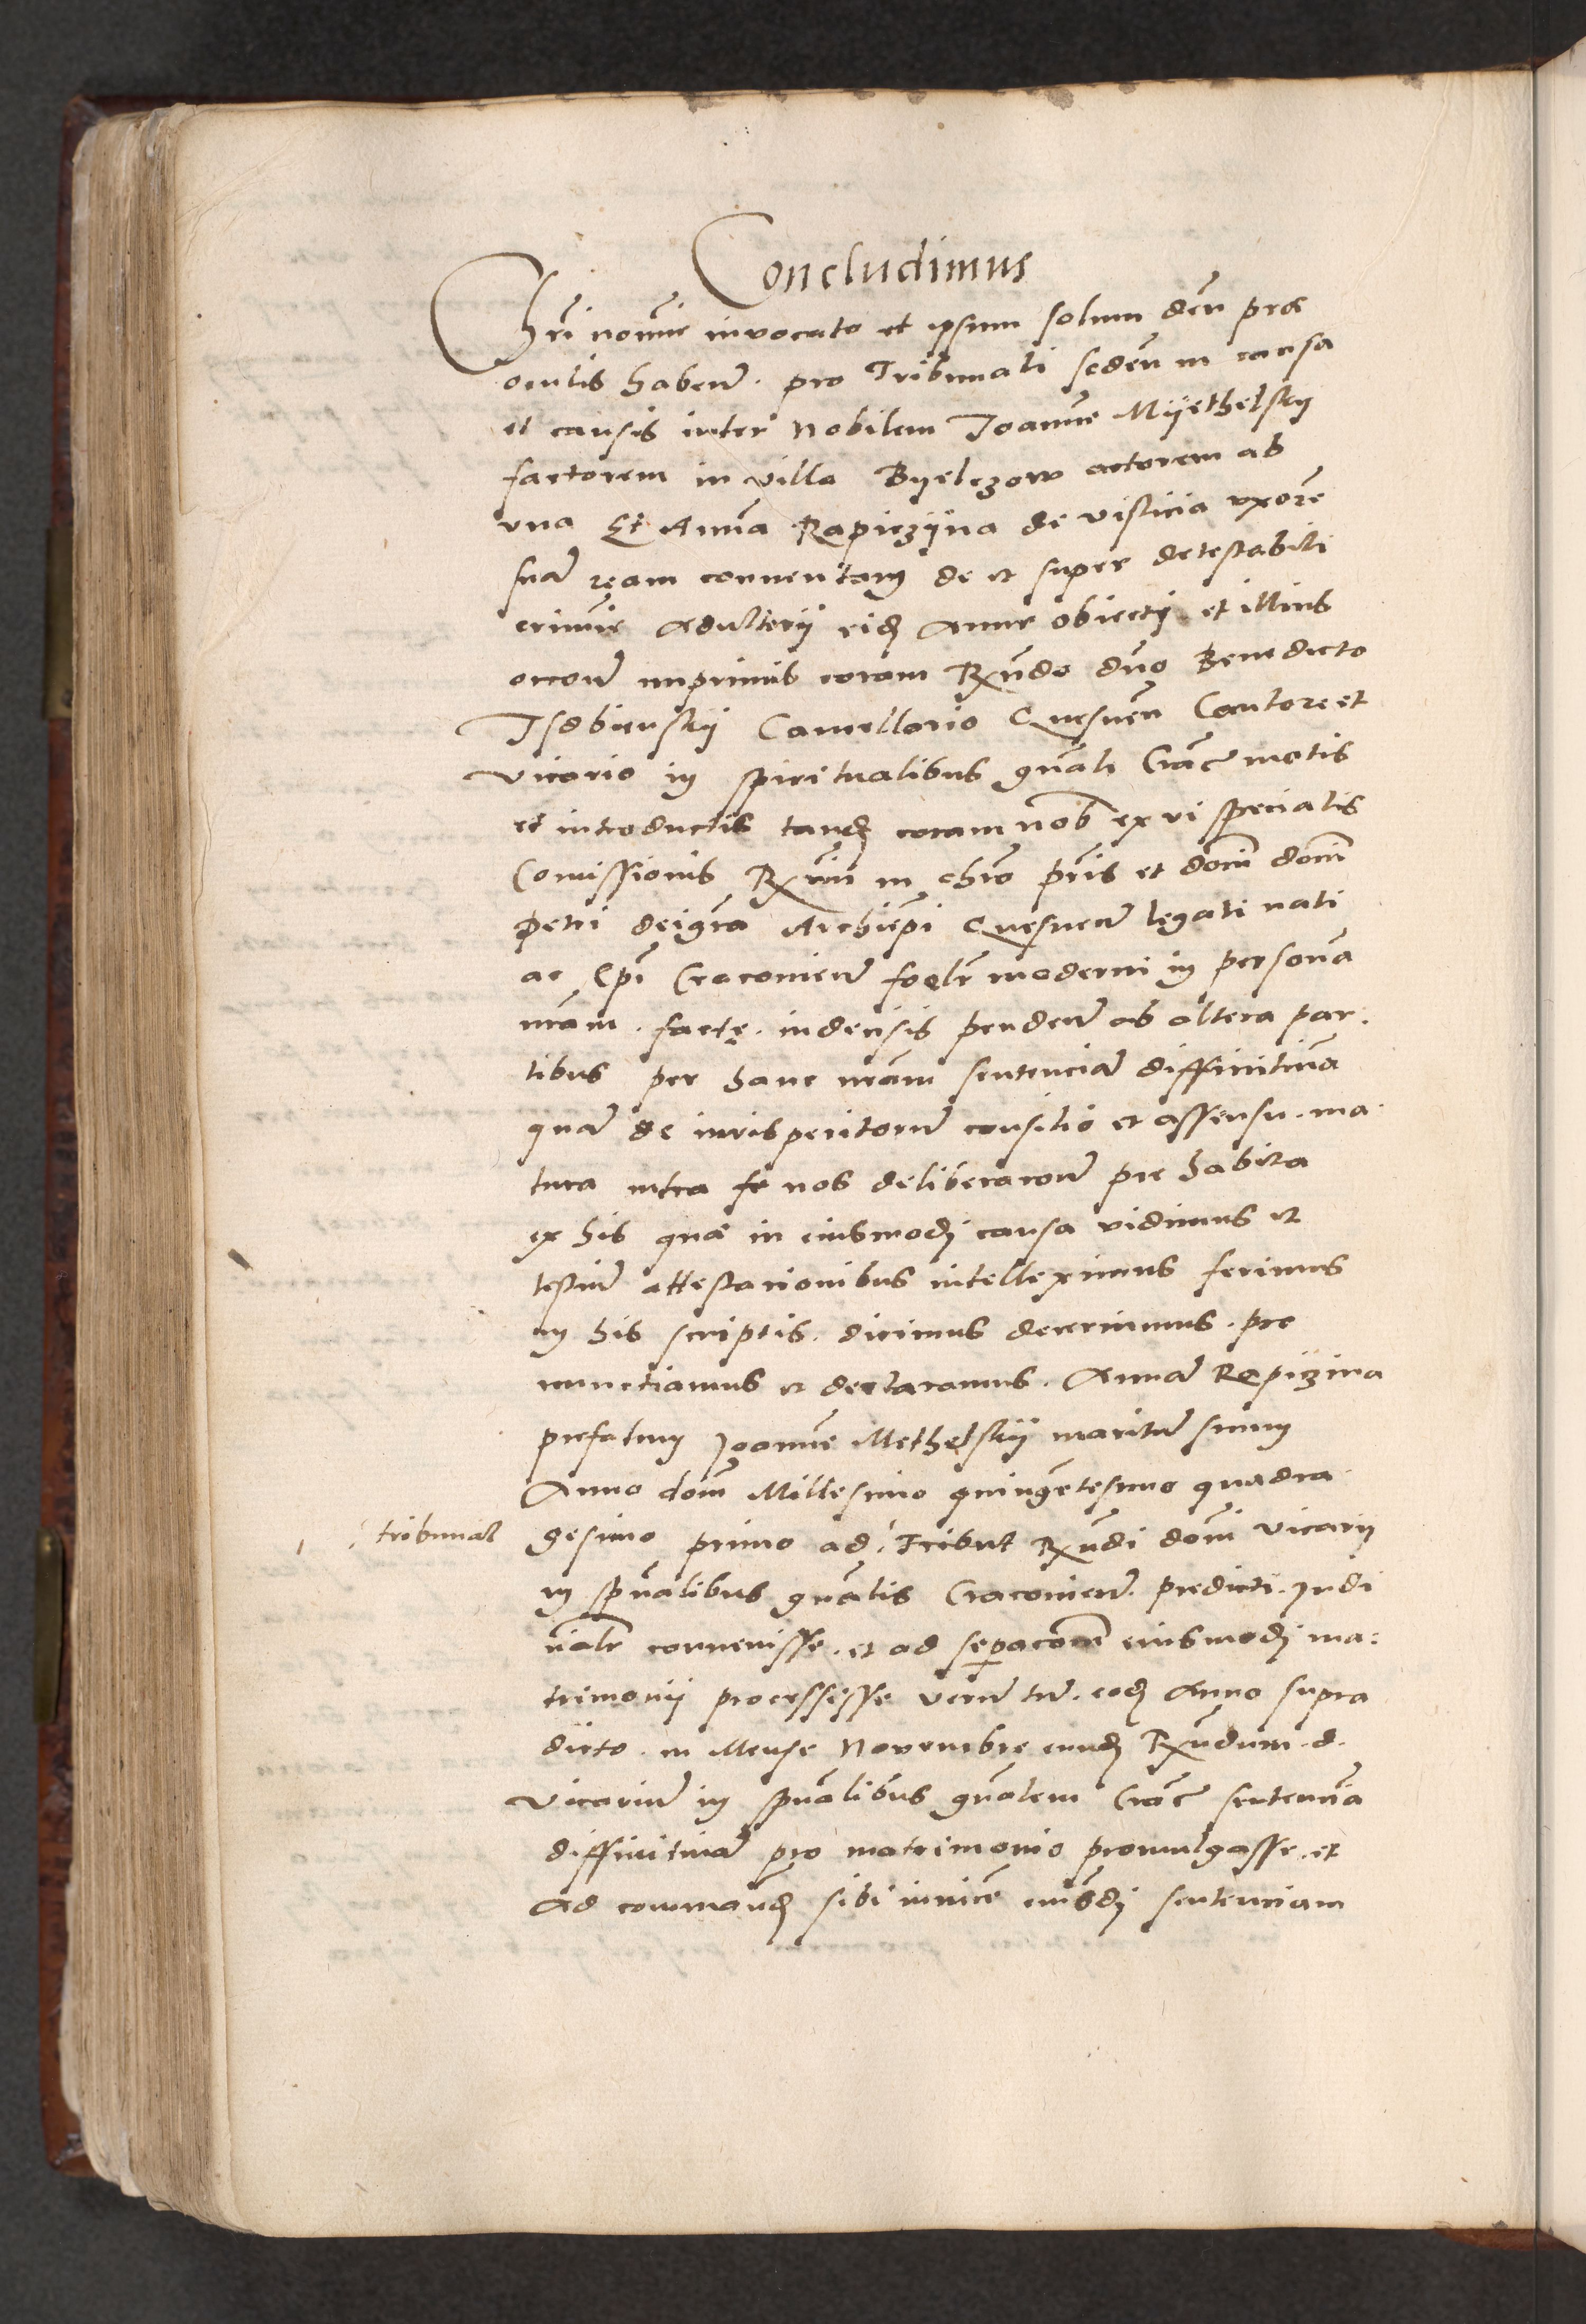 Concludimus
Chri nomine invocato et ipsum solum deu prae
oculis haben̄. pro Tribunali seden in causa
et causis inter Nobilem Joanne Myethelsky
factorem in villa Byelczow actorem ab
vna Et Anna Rapiczÿna de visticia vxore
sua ream conventam de et super detestabili
crimine adulterii eid Anne obiecti et illius
occon̄ imprimis coram Rndo dno Benedicto
Isdbienskÿ Cancellario Gnesnen Cantore et
vicario in spiritualibus gnali Crac motis
et introductis tand coram nob ex vi specialis
Comissionis Rmi in chro pris et domi domi
Petri dei gra Archiepi Gnesnen̄ legati nati
ac Epi Cracovien̄ foelr moderni in persona
nram. factę. indecisis penden̄ ab altera par.
tibus per hanc nram sentencia diffinitiva
qua de iurisperitoru consilio et assensu. ma.
tura intra se nos deliberacon̄ pre habita
ex his quae in eiusmodi causa vidimus et
testiu attestacionibus intelleximus ferimus
in his scriptis. dicimus decernimus. pro
nunctiamus et declaramus. Anna Rapiczina
prefatum Joanne Methelskÿ maritu suum
Anno domi Millesimo quingetesimo quadra
gesimo primo ad tribut Rndi domi vicarii
tribunal
in spualibus gnalis Cracovien̄. predicti. Judi
cialr convenisse. et ad sepacoem eiusmodi ma:
trimonii processisse veru tn̄. eod Anno supra
dicto. in Mense Novembre eund Rndum. d.
vicariu in spualibus gnalem Crac sentencia
diffinitiva pro matrimonio promulgasse. et
ad command sibi invice eiusdi sentenciam